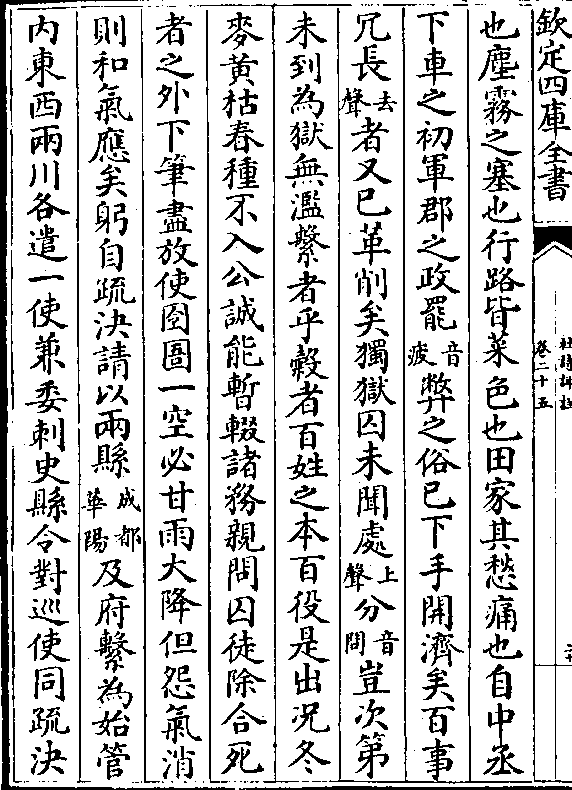 欽定四庫全書
杜詩詳註
卷二十五
也塵霧之塞也行路皆菜色也田家其愁痛也自中丞
下車之初軍郡之政罷音疲弊之俗已下手開濟矣百事
冗長去聲者又已革削矣獨獄囚未聞處上聲分音問豈次第
未到為獄無濫繫者乎穀者百姓之本百役是出况冬
麥黄枯春種不入公誠能暫輟諸務親問囚徒除合死
者之外下筆盡放使囹圄一空必甘雨大降但怨氣消
則和氣應矣躬自疏決請以兩縣成都華陽及府繫為始管
内東西兩川各遣一使兼委刺史縣令對巡使同疏決